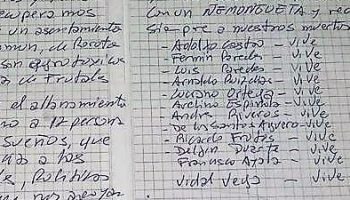 recuperamos
un asentamiento
comun, de Porotos
son agrotoxicos
a de Frutales
el allanamiento
o a 12 person
sueños, que
a los
Politicos
no apoyar
Comun NEMONGUETA y rec
Siempre a nuestros muertos
- Adolfo Castro - VIVE
- Fermin Paredes - VIVE
- Luis Paredes - VIVE
- Arnaldo Ruizdias - VIVE
- Luciano Ortega - VIVE
- Avelino Espinola - VIVE
- Andres Riveros - VIVE
- De los Santos Aguero - VIVE
- Ricardo Frutos - VIVE
- Delfin Duarte - VIVE
- Francisco Ayala - VIVE
Vidal Vega - VIVE